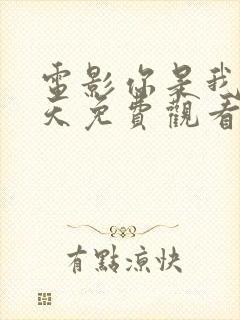 電影你呆我
天免費觀看
有點涼快